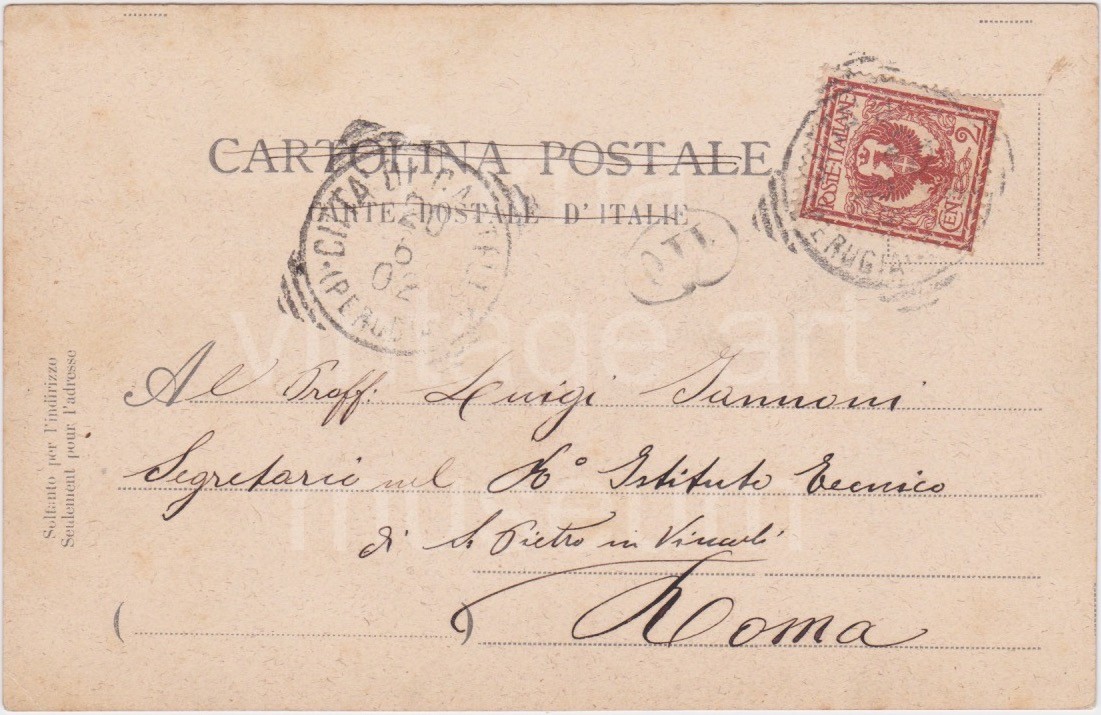 CARTOLINA POSTALE
CARTE POSTALE D'ITALIE
CITTÀ DI CASTELLO
(PERUGIA)
02
POSTE ITALIANE
CEN. 2
PERUGIA
Soltanto per l'indirizzo
Seulement pour l'adresse
Al Proff. Luigi Iannoni
Segretario nel R° Istituto Tecnico
di S. Pietro in Vincoli
Roma
vintage art
museum